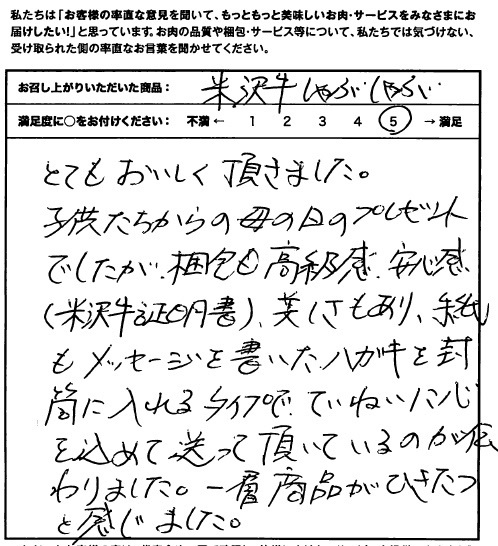 私たちは「お客様の率直な意見を聞いて、もっともっと美味しいお肉・サービスをみなさまにお
届けしたい！」と思っています。お肉の品質や梱包・サービス等について、私たちでは気づけない、
受け取られた側の率直なお言葉を聞かせてください。
お召し上がりいただいた商品： 米沢牛しゃぶしゃぶ
満足度に○をお付けください： 不満 ← 1 2 3 4 5 → 満足
とてもおいしく頂きました。
子供たちからの母の日のプレゼント
でしたが、梱包も高級感、安心感
(米沢牛証明書)、美しさもあり、手紙
もメッセージを書いたハガキを封
筒に入れるタイプで、ていねいに心
を込めて送って頂いているのが伝
わりました。一層商品がひきたつ
と感じました。